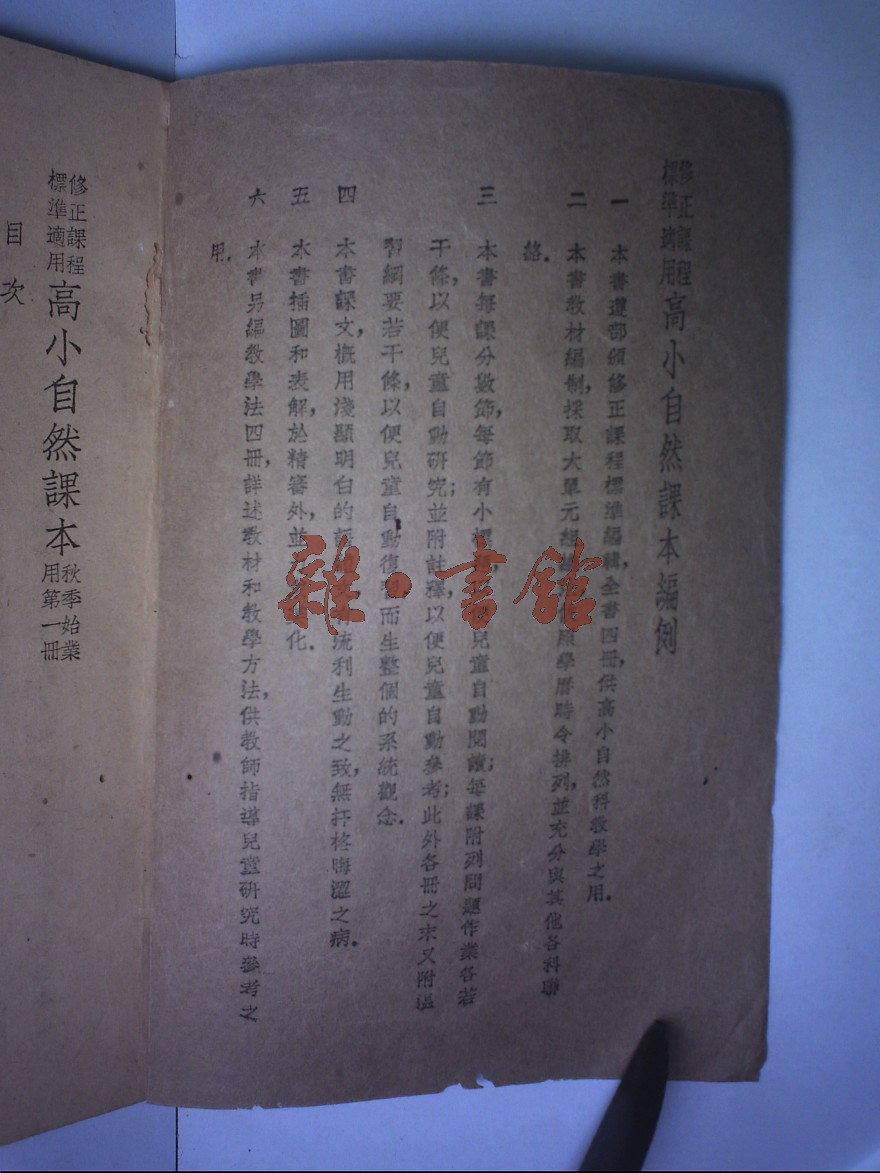 修正課程標準適用 高小自然課本編例
一 本書遵部頒修正課程標準編輯,全書四冊,供高小自然科教學之用.
二 本書教材編制,採取大單元組 照學曆時令排列,並充分與其他各科聯
絡.
三 本書每課分數節,每節有小標 便兒童自動閱讀;每課附列問題作業各若
干條,以便兒童自動研究;並附註釋,以便兒童自動參考;此外各冊之末又附溫
習綱要若干條,以便兒童自動復習而生整個的系統觀念.
四 本書課文,概用淺顯明白的 有流利生動之致,無扞格晦澀之病.
五 本書插圖和表解,於精審外,並 化.
六 本書另編教學法四冊,詳述教材和教學方法,供教師指導兒童研究時參考之
用.
修正課程標準適用 高小自然課本 秋季始業用第一冊
目次
雜·書館